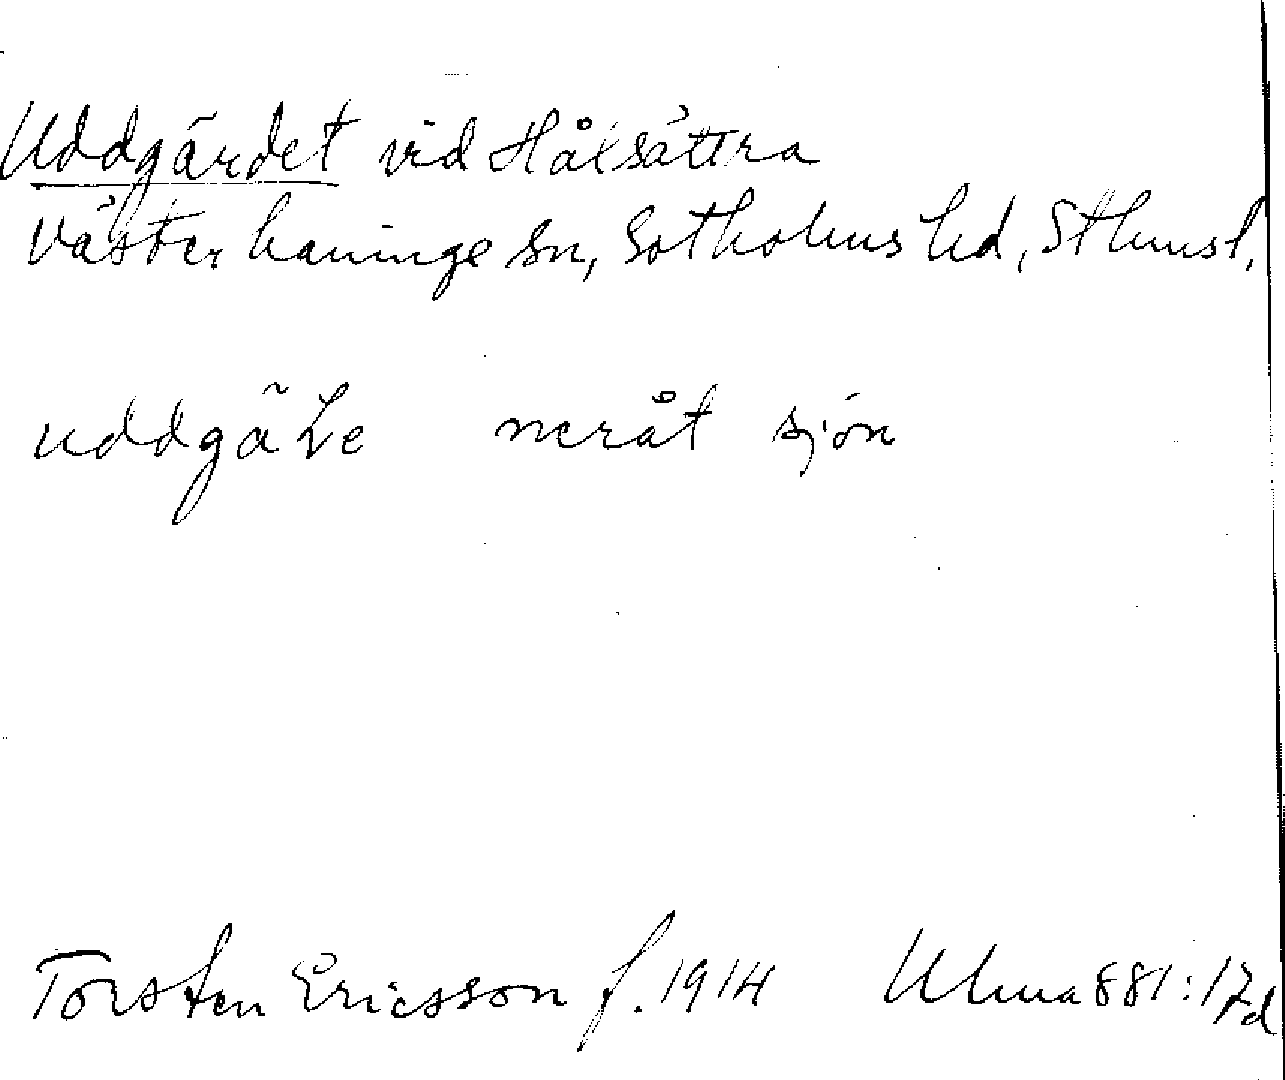 Uddgärdet vid Hålsättra
Västerhaninge sn, Sotholms hd, Sthms l.
uddgäLe neråt sjön
Torsten Ericsson f. 1914 Ulma 881:12d